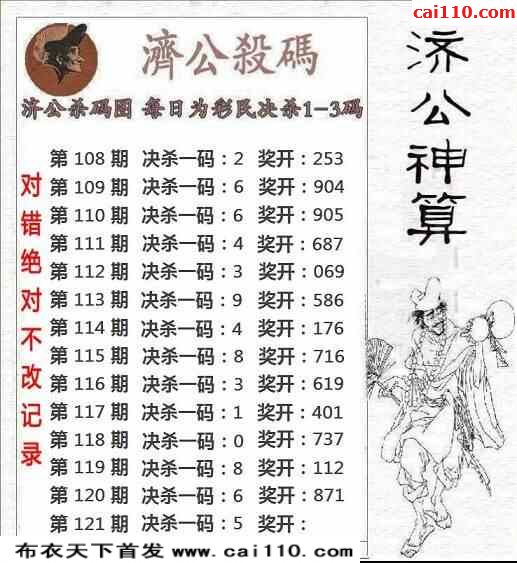 cai110.com
濟公殺碼
济公杀码图 每日为彩民决杀1-3码
济公神算
对错绝对不改记录
第 108 期 决杀一码：2 奖开：253
第 109 期 决杀一码：6 奖开：904
第 110 期 决杀一码：6 奖开：905
第 111 期 决杀一码：4 奖开：687
第 112 期 决杀一码：3 奖开：069
第 113 期 决杀一码：9 奖开：586
第 114 期 决杀一码：4 奖开：176
第 115 期 决杀一码：8 奖开：716
第 116 期 决杀一码：3 奖开：619
第 117 期 决杀一码：1 奖开：401
第 118 期 决杀一码：0 奖开：737
第 119 期 决杀一码：8 奖开：112
第 120 期 决杀一码：6 奖开：871
第 121 期 决杀一码：5 奖开：
布衣天下首发 www.cai110.com